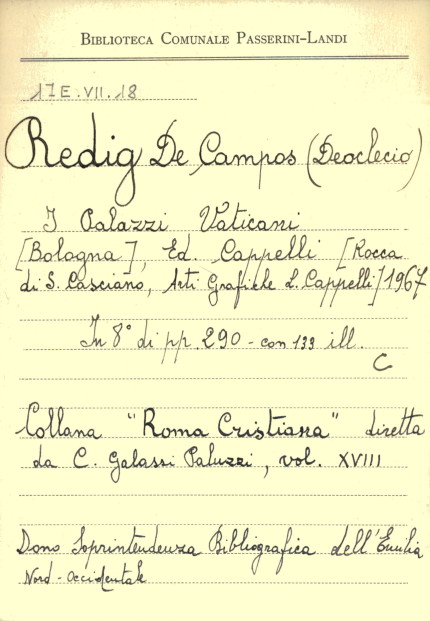 BIBLIOTECA COMUNALE PASSERINI-LANDI
17E.VII.18
Redig De Campos (Deoclecio)
I Palazzi Vaticani
[Bologna], Ed. Cappelli [Rocca
di S. Casciano, Arti Grafiche L. Cappelli] 1967
In 8° di pp. 290 - con 133 ill.
C
Collana "Roma Cristiana" diretta
da C. Galassi Paluzzi, vol. XVIII
Dono Soprintendenza Bibliografica dell'Emilia
Nord-occidentale